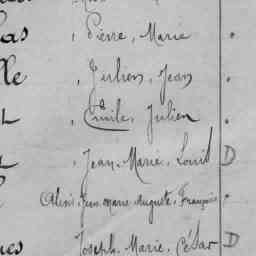 as , Pierre, Marie
lle , Julien, Jean
, Emile, Julien
Jean-Marie, Louis D
Jean Marie Auguste, François
es Joseph, Marie, César D